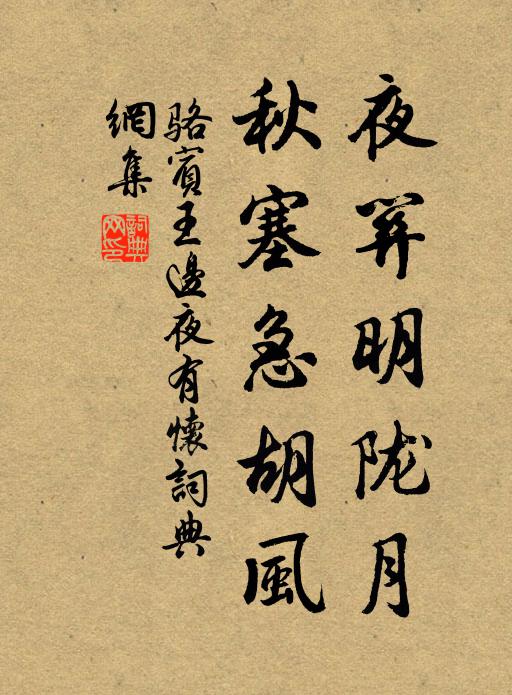 夜关明陇月
秋塞急胡風
駱賓王邊夜有懷詞典
網集
詞典
网印